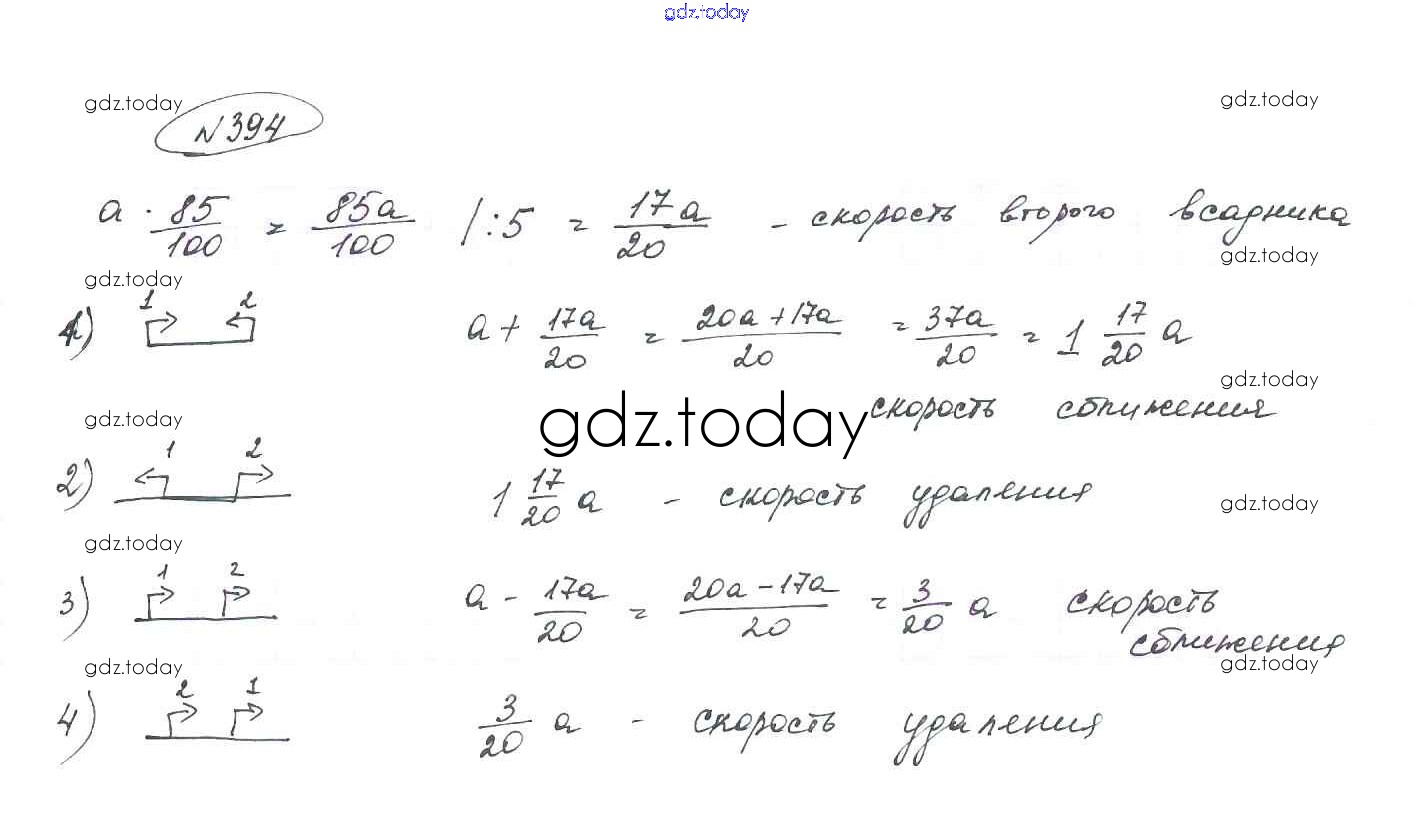 gdz.today
gdz.today gdz.today
N 394
a · 85/100 = 85a/100 /:5 = 17a/20 - скорость второго всадника
gdz.today gdz.today
1) 1 2 a + 17a/20 = 20a+17a/20 = 37a/20 = 1 17/20 a
gdz.today
скорость сближения
gdz.today gdz.today
2) 1 2 1 17/20 a - скорость удаления
gdz.today
gdz.today
3) 1 2 a - 17a/20 = 20a-17a/20 = 3/20 a скорость
сближения
gdz.today gdz.today
4) 2 1 3/20 a - скорость удаления